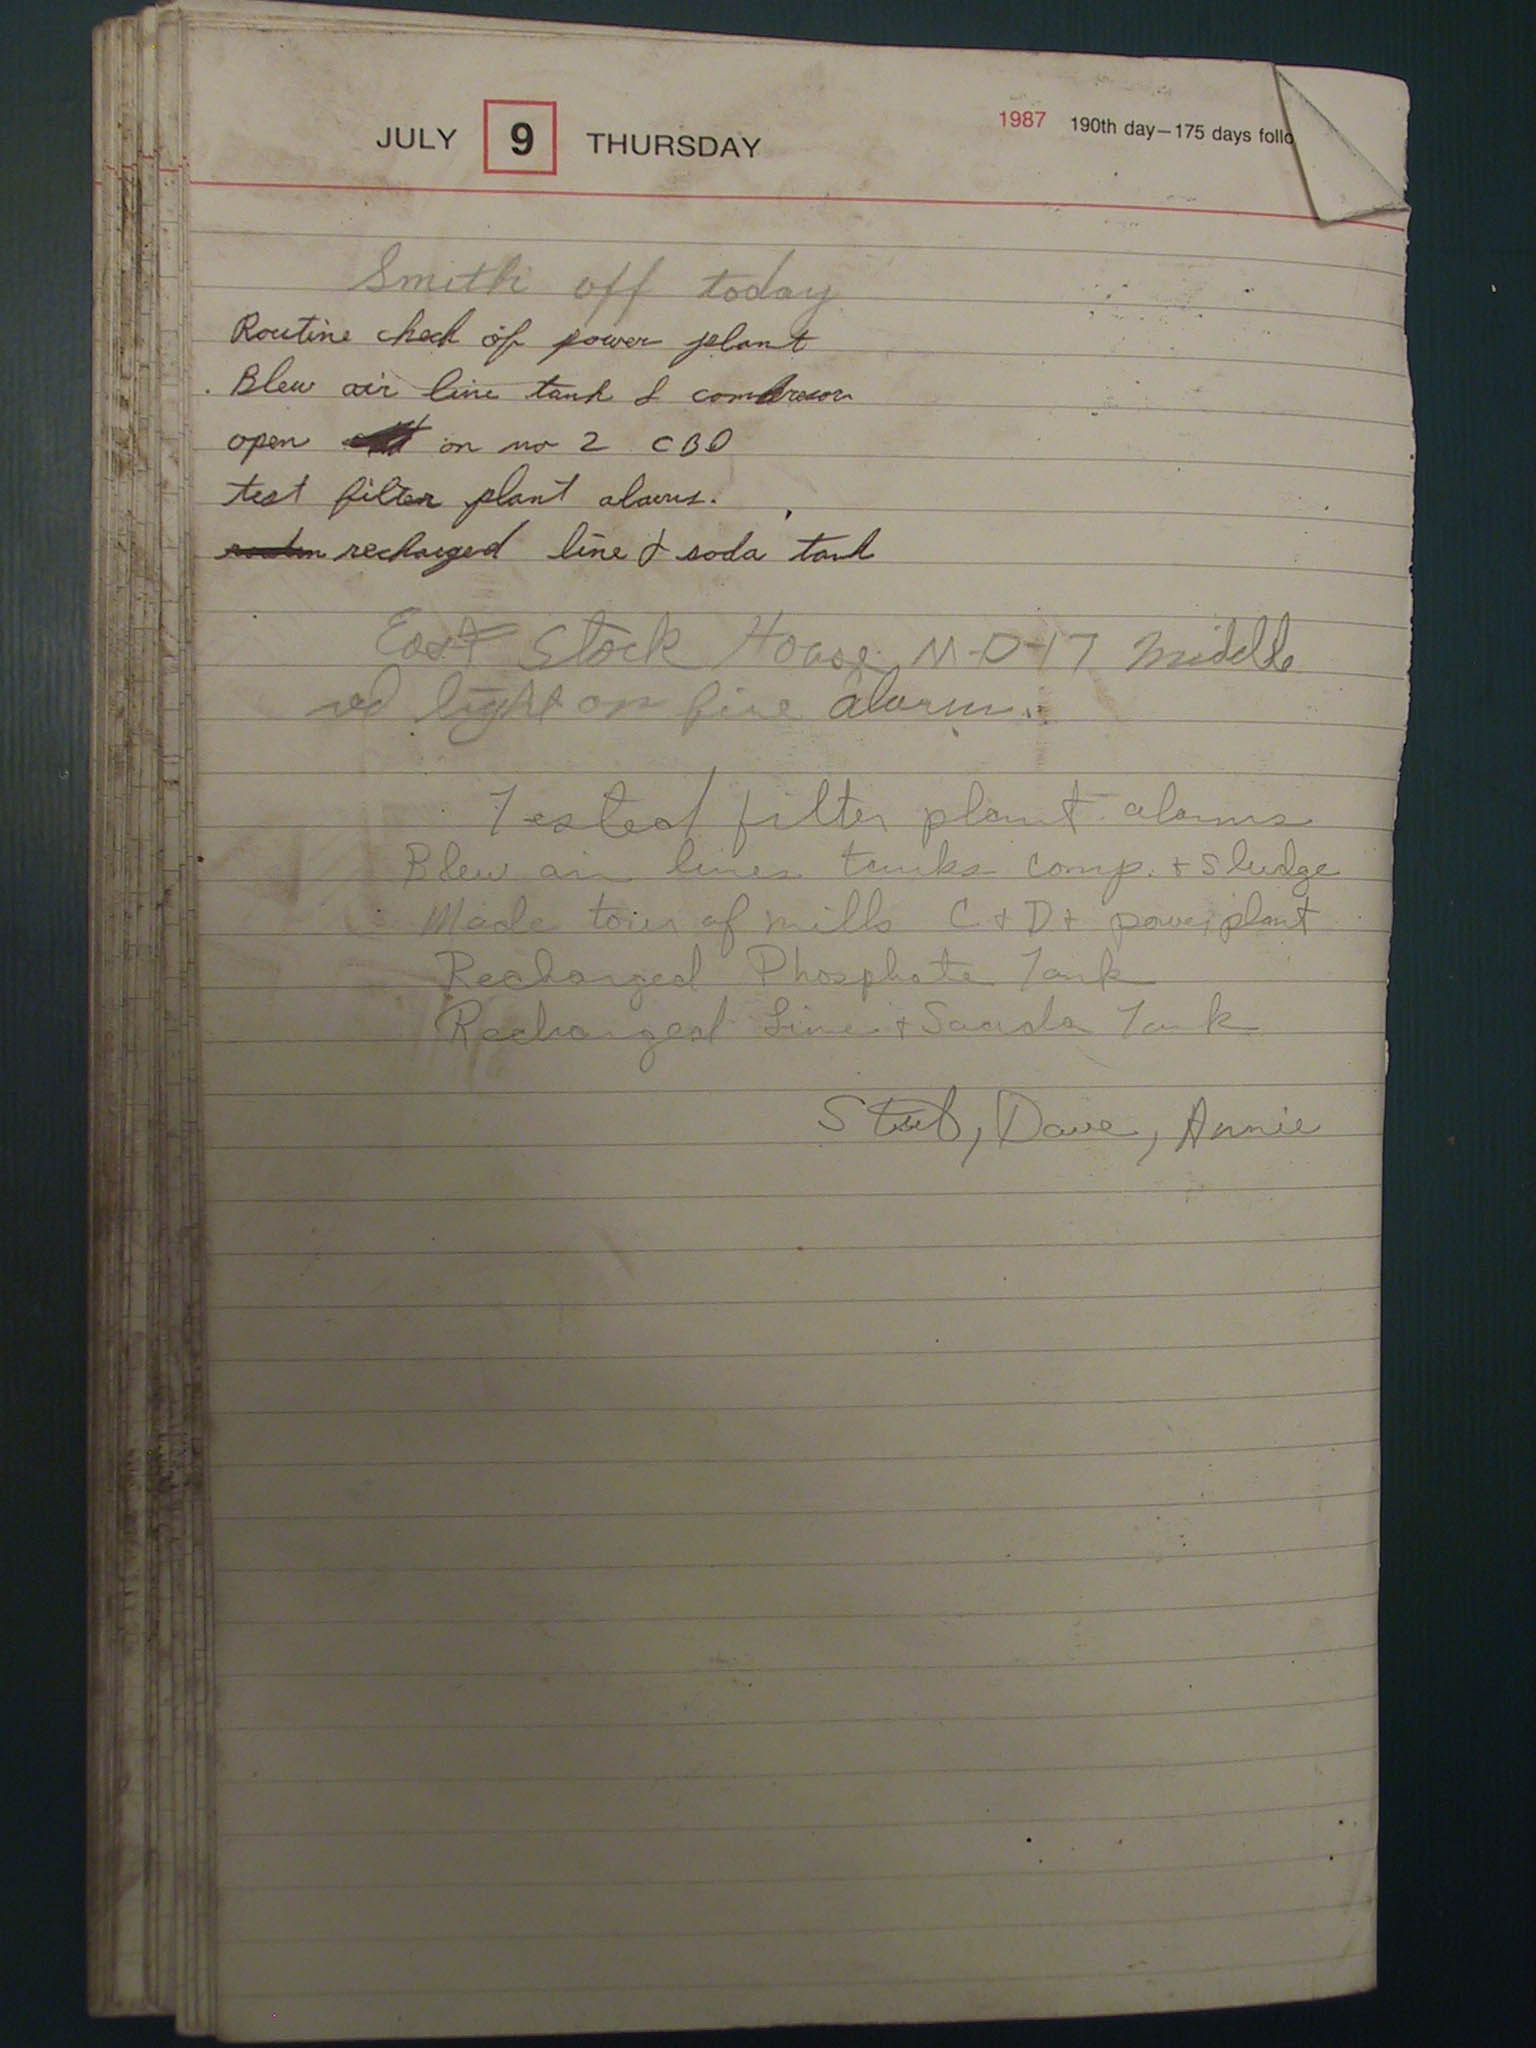 JULY 9 THURSDAY 1987 190th day—175 days follo
Smith off today
Routine check of power plant
Blew air line tank & compresor
open on no 2 CBD
test filter plant alarms.
recharged line & soda tank
East Stock House M-D-17 Middle
red light on fire alarm.
Tested filter plant alarms
Blew air lines tanks comp. + Sludge
Made tour of mills C + D + power plant
Recharged Phosphate Tank
Recharged Lime + Saoda Tank
Dave, Annie